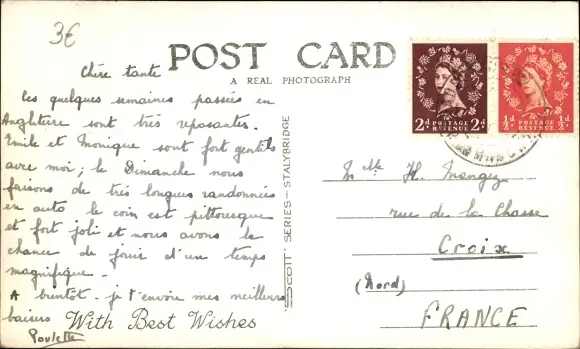 3€
POST CARD
A REAL PHOTOGRAPH
Chère tante
les quelques semaines passées en
Angleterre sont très reposantes.
Emile et Monique sont fort gentils
avec moi ; le Dimanche nous
faisons de très longues randonnées
en auto le coin est pittoresque
et fort joli et nous avons la
chance de jouir d'un temps
magnifique.
A bientôt. je t'envoie mes meilleurs
baisers
Paulette
With Best Wishes
SCOTT SERIES - STALYBRIDGE
2d POSTAGE REVENUE 2d
½d POSTAGE REVENUE ½d
Melle H.
rue de la Chasse
Croix
(Nord)
FRANCE